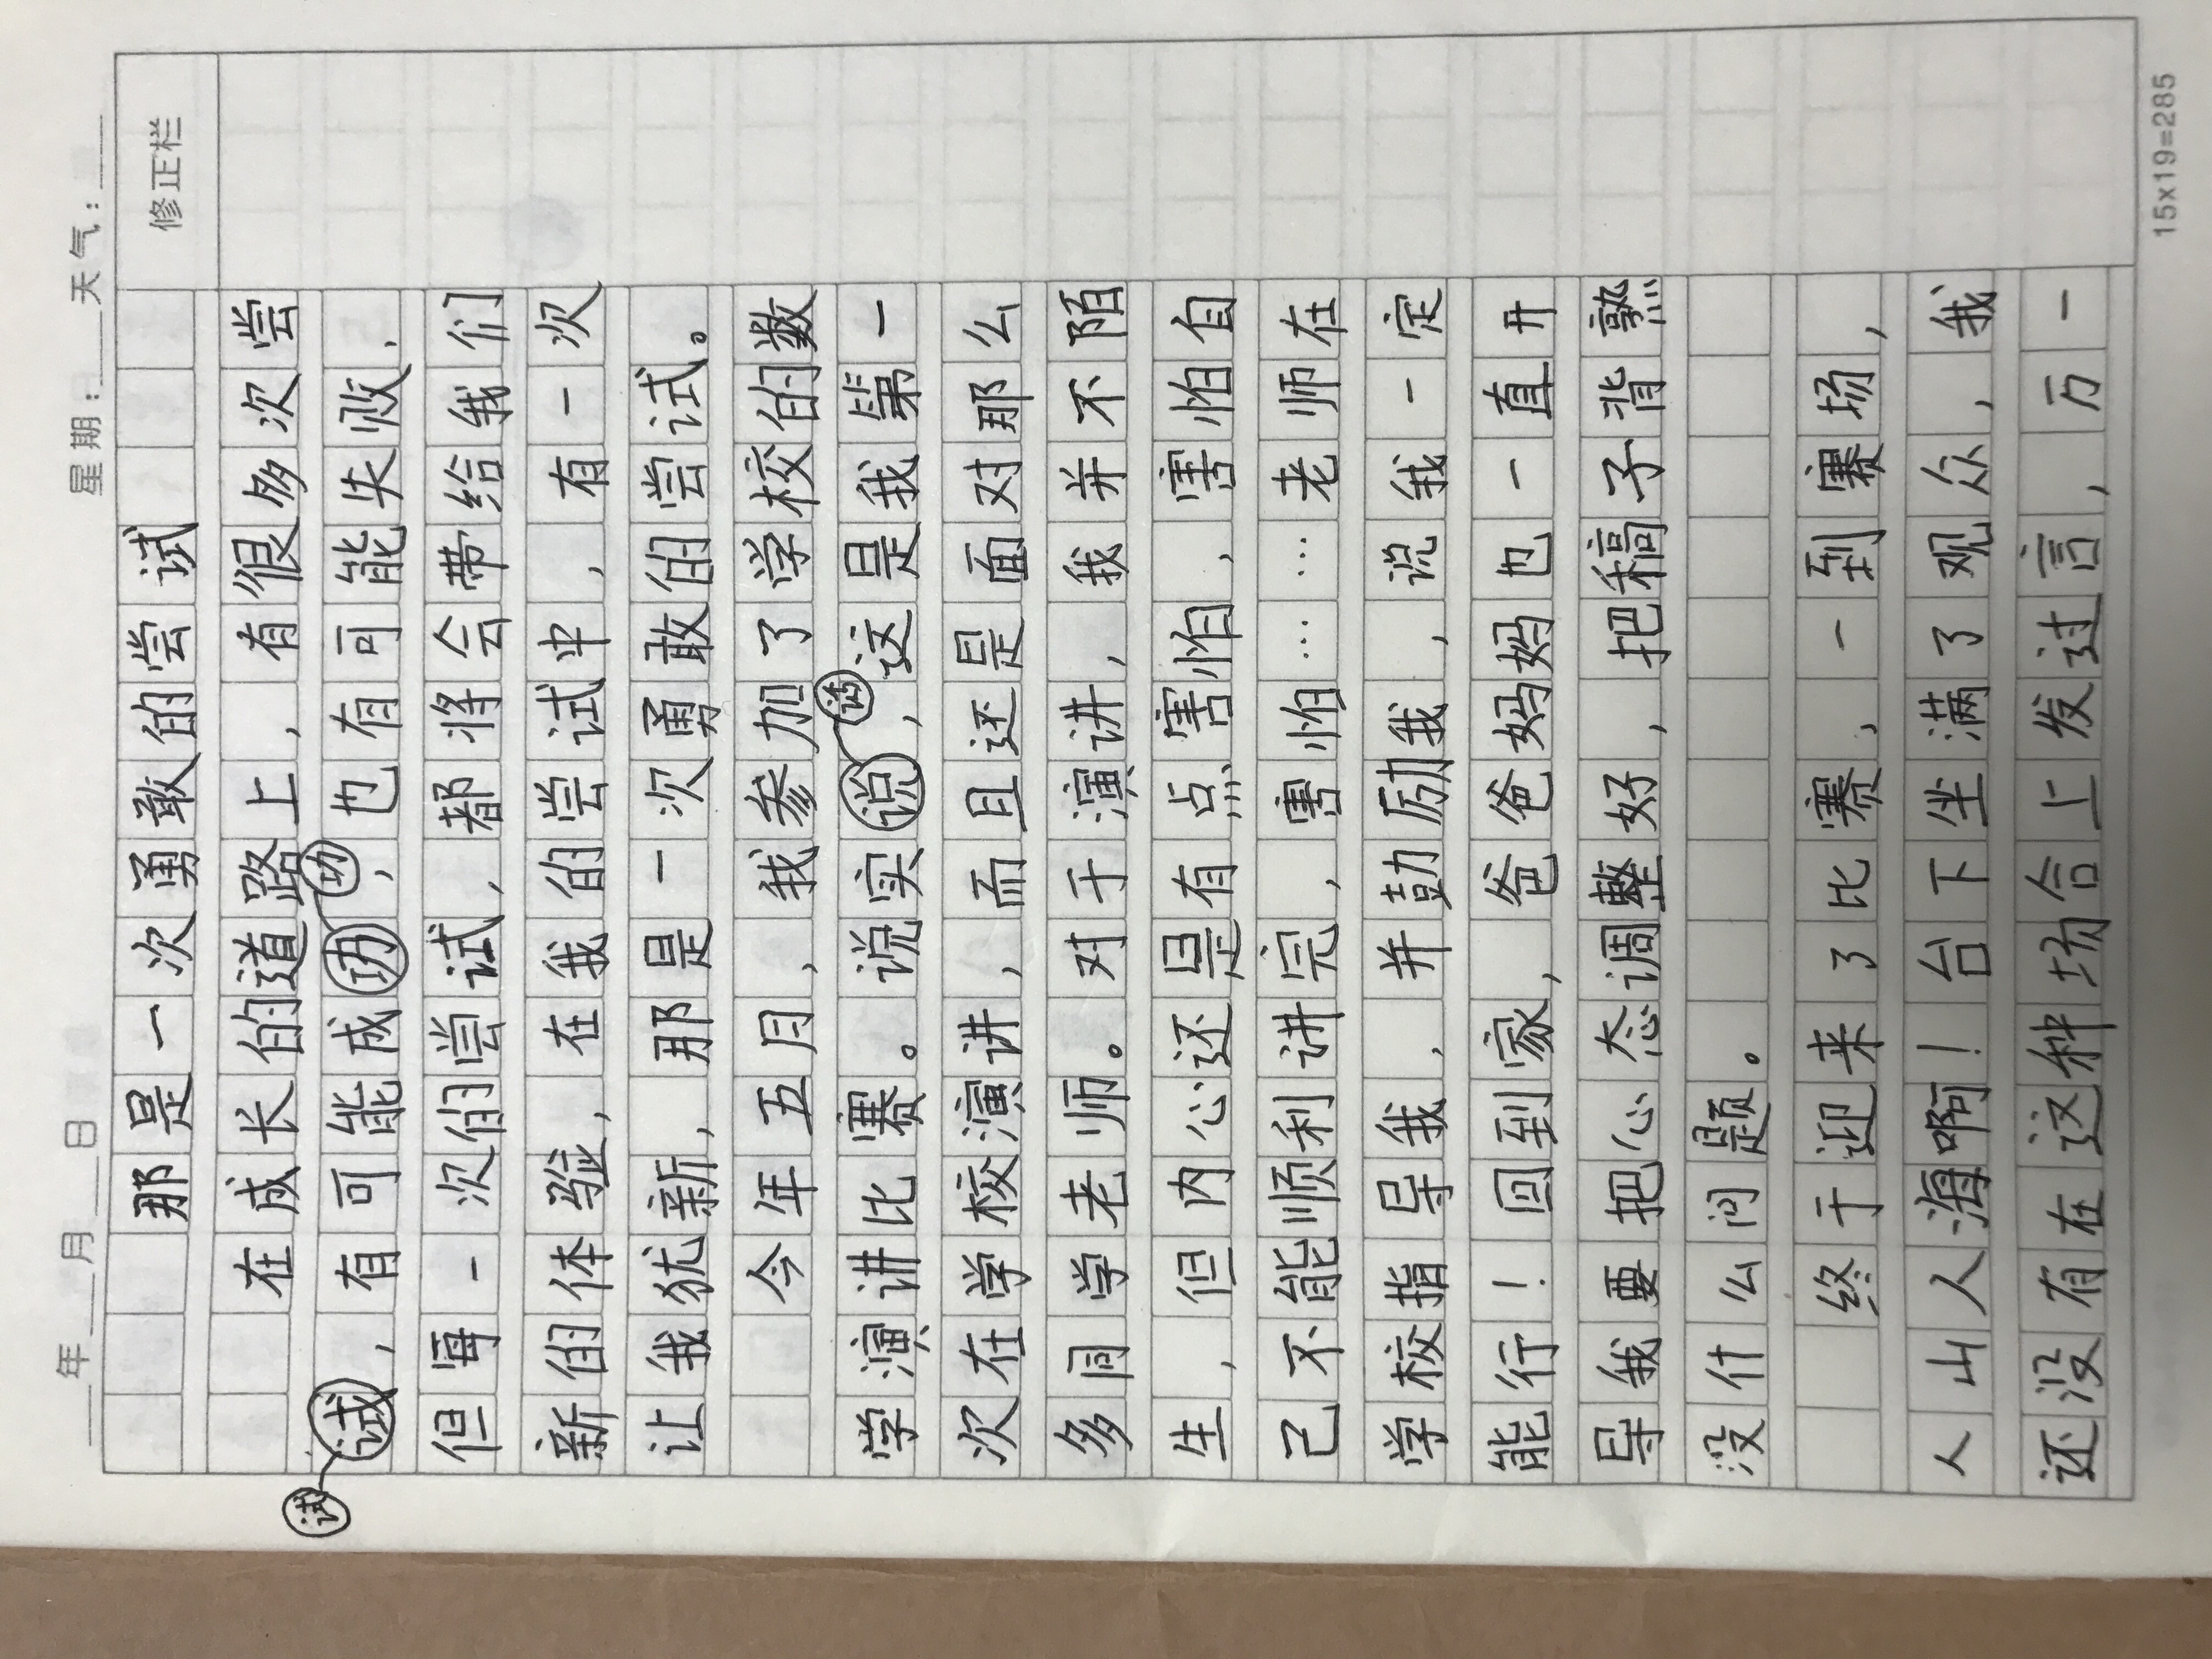 年 月 日 星期: 天气:
修正栏
那是一次勇敢的尝试
在成长的道路上，有很多次尝
试，有可能成功，也有可能失败，
但每一次的尝试，都将会带给我们
新的体验，在我的尝试中，有一次
让我犹新，那是一次勇敢的尝试。
今年五月，我参加了学校的数
学演讲比赛。说实话，这是我第一
次在学校演讲，而且还是面对那么
多同学老师。对于演讲，我并不陌
生，但内心还是有点害怕，害怕自
己不能顺利讲完，害怕……老师在
学校指导我，并鼓励我，说我一定
能行！回到家，爸爸妈妈也一直开
导我要把心态调整好，把稿子背熟
没什么问题。
终于迎来了比赛，一到赛场，
人山人海啊！台下坐满了观众，我
还没有在这种场合上发过言，万一
15x19=285